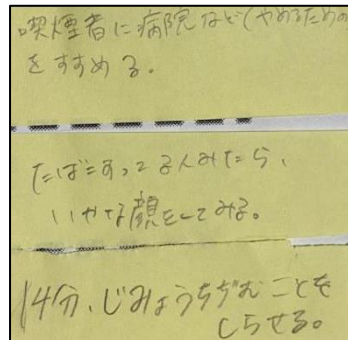 喫煙者に病院など(やめるための
をすすめる。
たばこすってる人みたら、
いやな顔をしてみる。
14分、じみょうちぢむことを
しらせる。